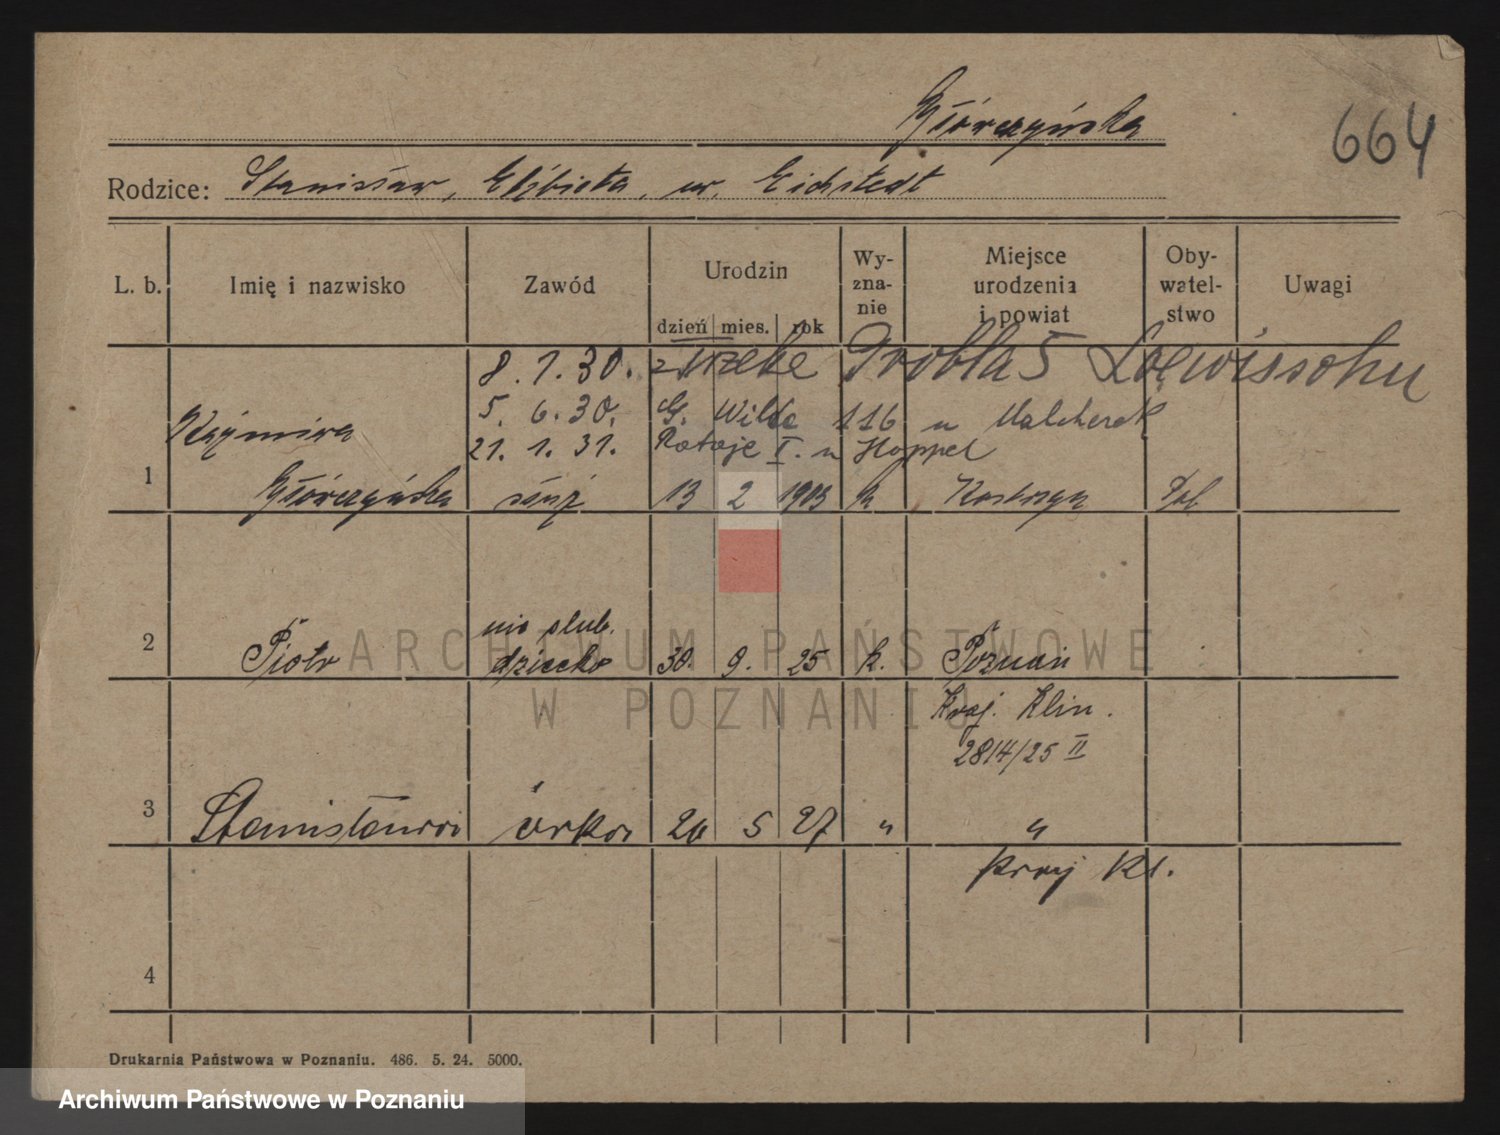 Główczyńska
664
Rodzice: Stanisław, Elżbieta, ur. Eichstedt
L. b. Imię i nazwisko Zawód Urodzin dzień mies. rok Wyznanie Miejsce urodzenia i powiat Obywatelstwo Uwagi
8. 1. 30. Grobla 5 Loewissohn
5. 6. 30. G. Wilda 116 u Malcherek
21. 1. 31. Rataje I. u Hoppel
Kazimira
1 Główczyńska służ 13 2 1903 k Pol
nie slub.
2 Piotr dziecko 30. 9. 25 k. Poznań
Kraj. Klin.
2814/25 II
3 Stanisława córka 20 5 27 " "
Kraj Kl.
4
Drukarnia Państwowa w Poznaniu. 486. 5. 24. 5000.
ARCHIWUM PAŃSTWOWE
W POZNANIU
Archiwum Państwowe w Poznaniu